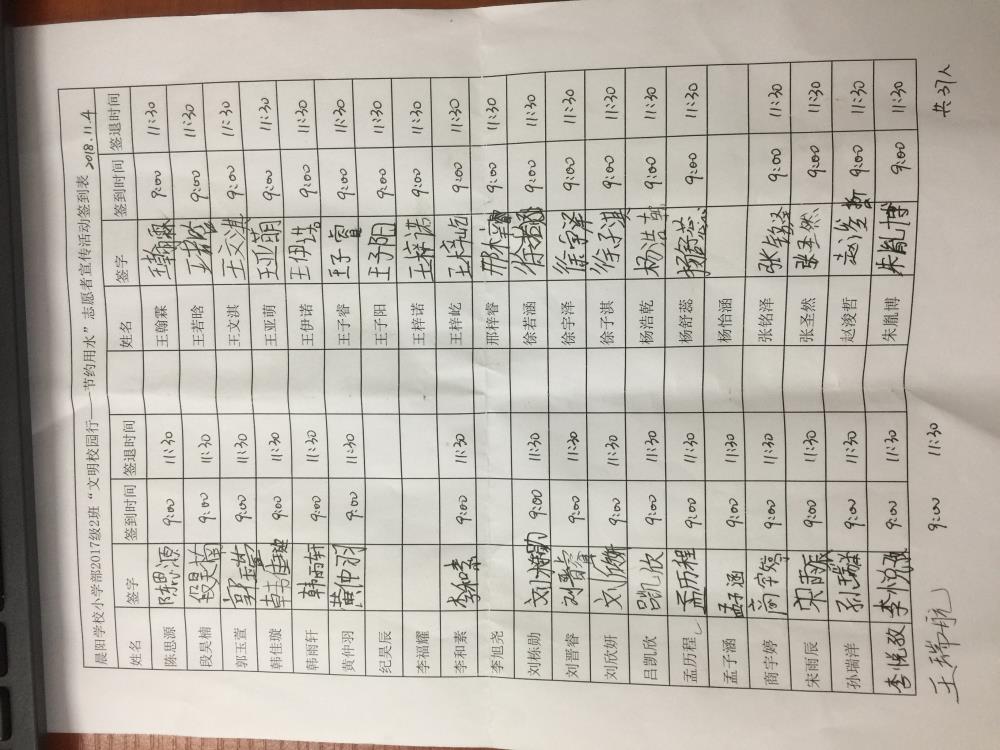 晨阳学校小学部2017级2班“文明校园行——节约用水”志愿者宣传活动签到表 2018.11.4
姓名 签字 签到时间 签退时间 姓名 签字 签到时间 签退时间
陈思源 陈思源 9:00 11:30 王翰霖 王翰霖 9:00 11:30
段昊楠 段昊楠 9:00 11:30 王若晗 王若晗 9:00 11:30
郭玉萱 郭玉萱 9:00 11:30 王文淇 王文淇 9:00 11:30
韩佳璇 韩佳璇 9:00 11:30 王亚萌 王亚萌 9:00 11:30
韩雨轩 韩雨轩 9:00 11:30 王伊诺 王伊诺 9:00 11:30
黄仲羽 黄仲羽 9:00 11:30 王子睿 王子睿 9:00 11:30
纪昊辰 王子阳 王子阳 9:00 11:30
李福耀 王梓诺 王梓诺 9:00 11:30
李和素 李和素 9:00 11:30 王梓屹 王梓屹 9:00 11:30
李旭尧 邢梓睿 邢梓睿 9:00 11:30
刘栋勋 刘栋勋 9:00 11:30 徐若涵 徐若涵 9:00 11:30
刘晋睿 刘晋睿 9:00 11:30 徐宇泽 徐宇泽 9:00 11:30
刘欣妍 刘欣妍 9:00 11:30 徐子淇 徐子淇 9:00 11:30
吕凯欣 吕凯欣 9:00 11:30 杨浩乾 杨浩乾 9:00 11:30
孟历程 孟历程 9:00 11:30 杨舒蕊 杨舒蕊 9:00 11:30
孟子涵 孟子涵 9:00 11:30 杨怡涵
商宇婷 商宇婷 9:00 11:30 张铭泽 张铭泽 9:00 11:30
宋雨辰 宋雨辰 9:00 11:30 张圣然 张圣然 9:00 11:30
孙瑞洋 孙瑞洋 9:00 11:30 赵浚哲 赵浚哲 9:00 11:30
李悦孜 李悦孜 9:00 11:30 朱胤博 朱胤博 9:00 11:30
王瑞航 9:00 11:30 共37人